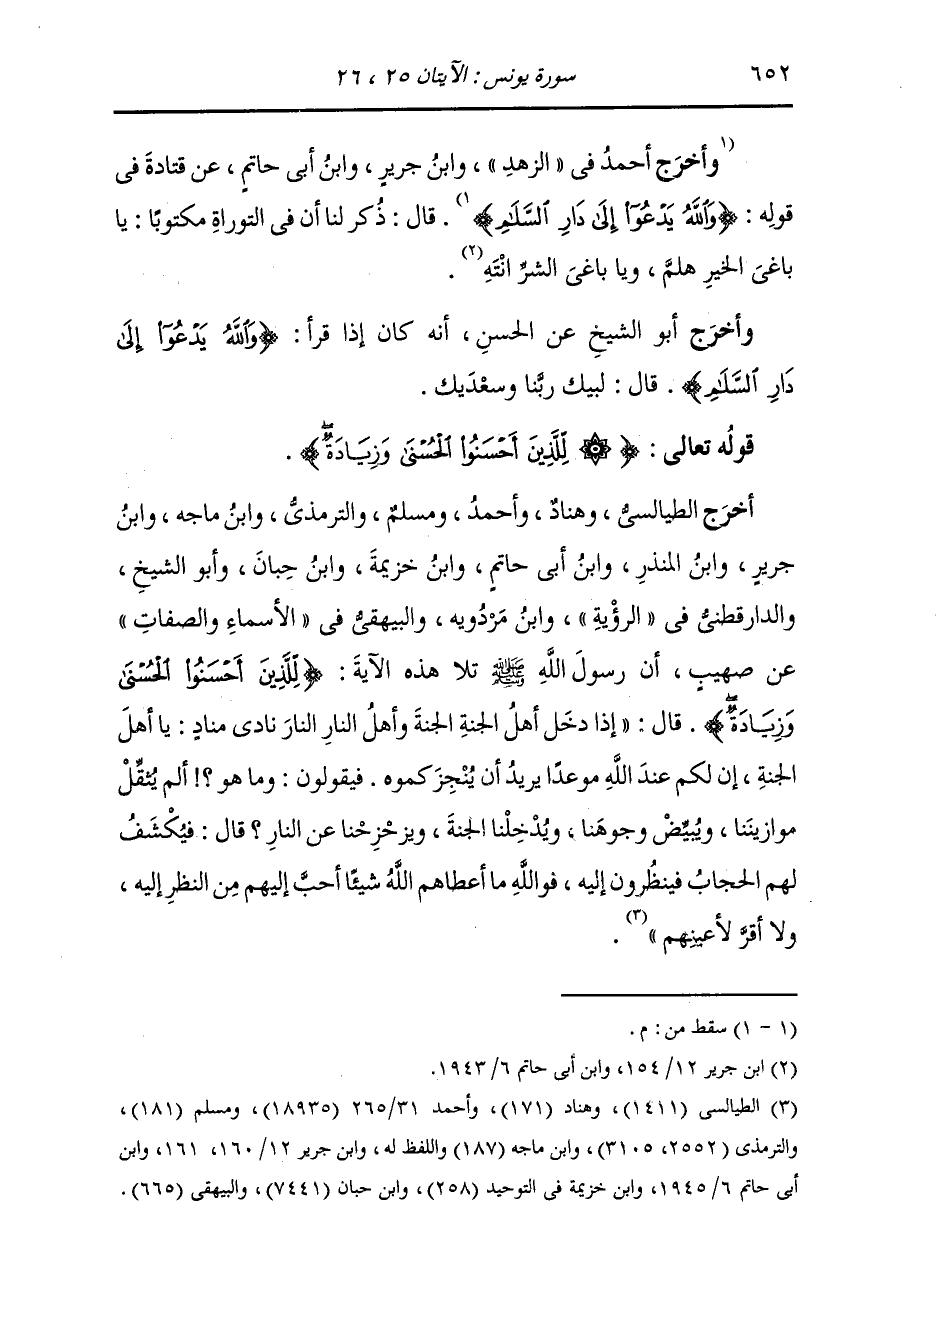 ٦٥٢ سورة يونس : الآيتان ٢٥ ، ٢٦
(١)وأخرَج أحمدُ فى « الزهدِ » ، وابنُ جريرٍ ، وابنُ أبى حاتمٍ ، عن قتادةَ فى
قولِه : ﴿وَٱللَّهُ يَدْعُوٓا۟ إِلَىٰ دَارِ ٱلسَّلَٰمِ﴾(١) . قال : ذُكر لنا أن فى التوراةِ مكتوبًا : يا
باغىَ الخيرِ هلمَّ ، ويا باغىَ الشرِّ انْتَهِ(٢) .
وأخرَج أبو الشيخِ عن الحسنِ ، أنه كان إذا قرأ : ﴿وَٱللَّهُ يَدْعُوٓا۟ إِلَىٰ
دَارِ ٱلسَّلَٰمِ﴾ . قال : لبيك ربَّنا وسعْدَيك .
قولُه تعالى : ﴿ ۞ لِّلَّذِينَ أَحْسَنُوا۟ ٱلْحُسْنَىٰ وَزِيَادَةٌۖ﴾ .
أخرَج الطيالسىُّ ، وهنادٌ ، وأحمدُ ، ومسلمٌ ، والترمذىُّ ، وابنُ ماجه ، وابنُ
جريرٍ ، وابنُ المنذرِ ، وابنُ أبى حاتمٍ ، وابنُ خزيمةَ ، وابنُ حِبانَ ، وأبو الشيخِ ،
والدارقطنىُّ فى « الرؤْيةِ » ، وابنُ مَرْدُويه ، والبيهقىُّ فى « الأسماءِ والصفاتِ »
عن صهيبٍ ، أن رسولَ اللَّهِ ﷺ تلا هذه الآيةَ : ﴿لِّلَّذِينَ أَحْسَنُوا۟ ٱلْحُسْنَىٰ
وَزِيَادَةٌۖ﴾ . قال : « إذا دخَل أهلُ الجنةِ الجنةَ وأهلُ النارِ النارَ نادى منادٍ : يا أهلَ
الجنةِ ، إن لكم عندَ اللَّهِ موعدًا يريدُ أن يُنْجِزَكموه . فيقولون : وما هو ؟! ألم يُثقِّلْ
موازينَنا ، ويُبيِّضْ وجوهَنا ، ويُدْخِلْنا الجنةَ ، ويزحْزِحْنا عن النارِ ؟ قال : فيُكْشَفُ
لهم الحجابُ فينظُرون إليه ، فواللَّهِ ما أعطاهم اللَّهُ شيئًا أحبَّ إليهم مِن النظرِ إليه ،
ولا أقرَّ لأعينِهم »(٣) .
(١ - ١) سقط من : م .
(٢) ابن جرير ١٢/ ١٥٤، وابن أبى حاتم ٦/ ١٩٤٣.
(٣) الطيالسى (١٤١١)، وهناد (١٧١)، وأحمد ٢٦٥/٣١ (١٨٩٣٥)، ومسلم (١٨١)،
والترمذى (٢٥٥٢، ٣١٠٥)، وابن ماجه (١٨٧) واللفظ له ، وابن جرير ١٢/ ١٦٠، ١٦١، وابن
أبى حاتم ٦/ ١٩٤٥، وابن خزيمة فى التوحيد (٢٥٨)، وابن حبان (٧٤٤١)، والبيهقى (٦٦٥).